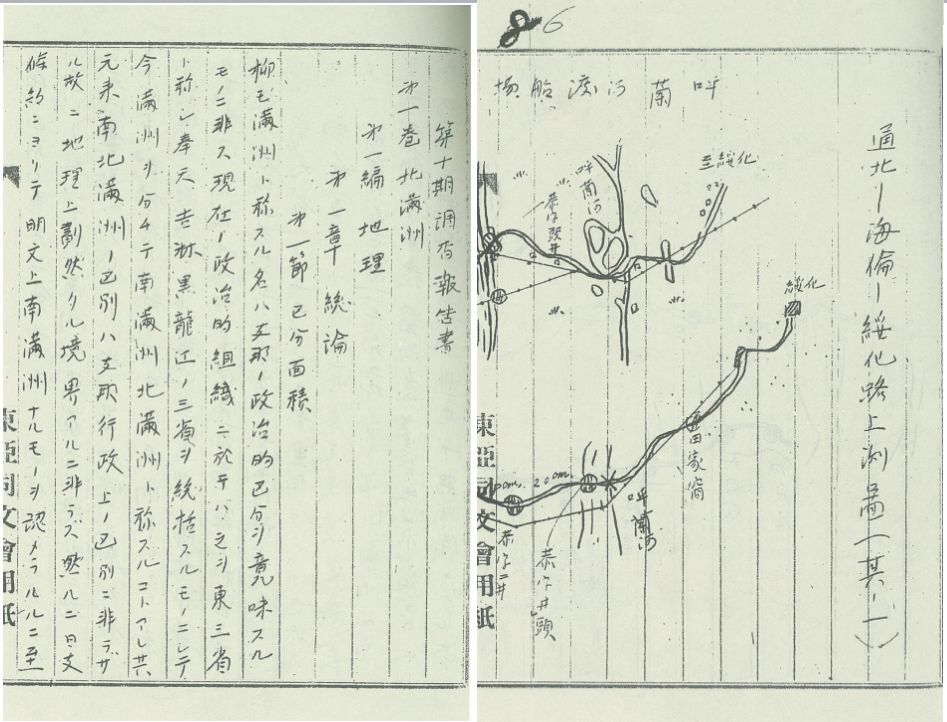 第十期調査報告書
第一巻 北満洲
第一編 地理
第一章 総論
第一節 区分面積
抑モ満洲ト称スル名ハ支那ノ政治的区分ヲ意味スル
モノニ非ス現在ノ政治的組織ニ於テハ之ヲ東三省
ト称シ奉天吉林黒龍江ノ三省ヲ統括スルモノニシテ
今満洲ヲ分チテ南満洲北満洲ト称スルコトアレ共
元来南北満洲ノ区別ハ支那行政上ノ区別ニ非ラザ
ル故ニ地理上劃然タル境界アルニ非ラズ然ルニ日支
條約ニヨリテ明文上南満洲ナルモノヲ認メラルルニ至
東亞同文會用紙
6
通北ー海倫ー綏化路上測圖(其ノ一)
呼蘭河渡船場
至綏化
呼蘭河
綏化
呼蘭河
200m.
泰字井頭
泰字二井
東亞同文會用紙